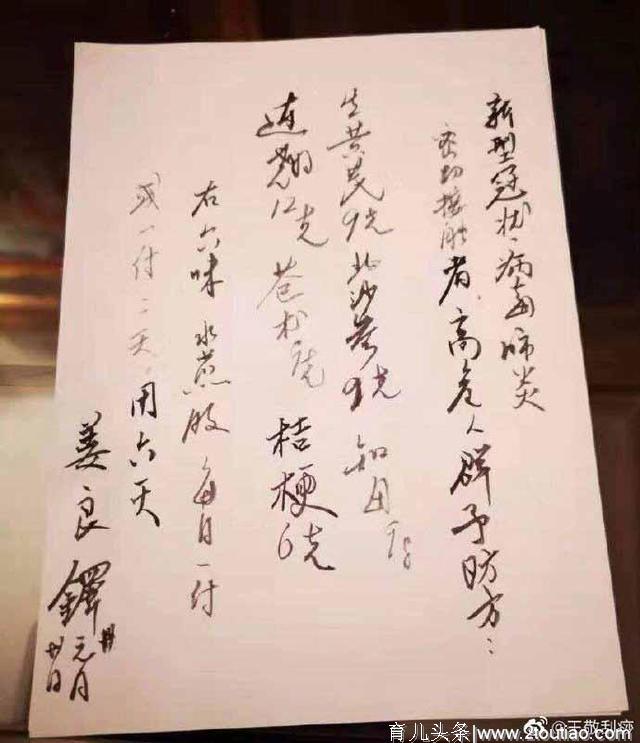 新型冠状病毒肺炎
密切接触者、高危人群予防方：
生黄芪9克 北沙参9克 知母
连翘12克 苍术 克 桔梗6克
右六味 水煎服 每日一付
或一付二天，用六天
姜良铎
元月
廿 日
@王敬利痰
育儿头条/www.zioutiao.com